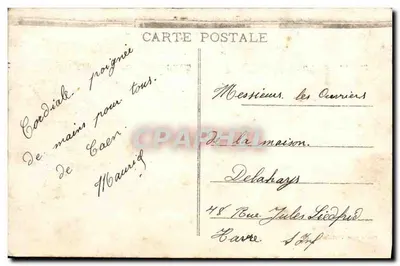 CARTE POSTALE
Cordiale poignée
de mains pour tous.
de Caen
Maurice
Messieurs les Ouvriers
de la maison
Delahays
48 Rue Jules Siegfried
Havre S Inf
CPARAMA